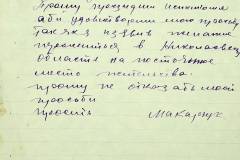 Прошу президиум исполкома
аби удовлетворили мою просьбу
так як я изявив желание
переехать в Николаевску
область на постоянное
место жительства.
прошу не отказать моей
просьби
просить Макарчук